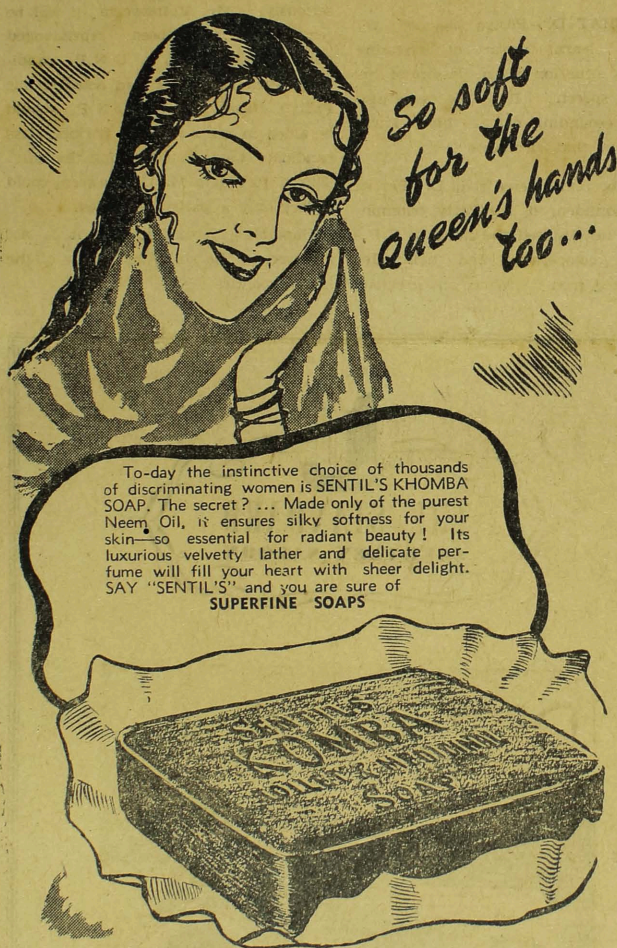 So soft
for the
Queen's hands
too...
To-day the instinctive choice of thousands
of discriminating women is SENTIL'S KHOMBA
SOAP. The secret? ... Made only of the purest
Neem Oil, it ensures silky softness for your
skin—so essential for radiant beauty! Its
luxurious velvetty lather and delicate per-
fume will fill your heart with sheer delight.
SAY "SENTIL'S" and you are sure of
SUPERFINE SOAPS
SENTIL'S
KOMBA
TOILET & MEDICINAL
SOAP